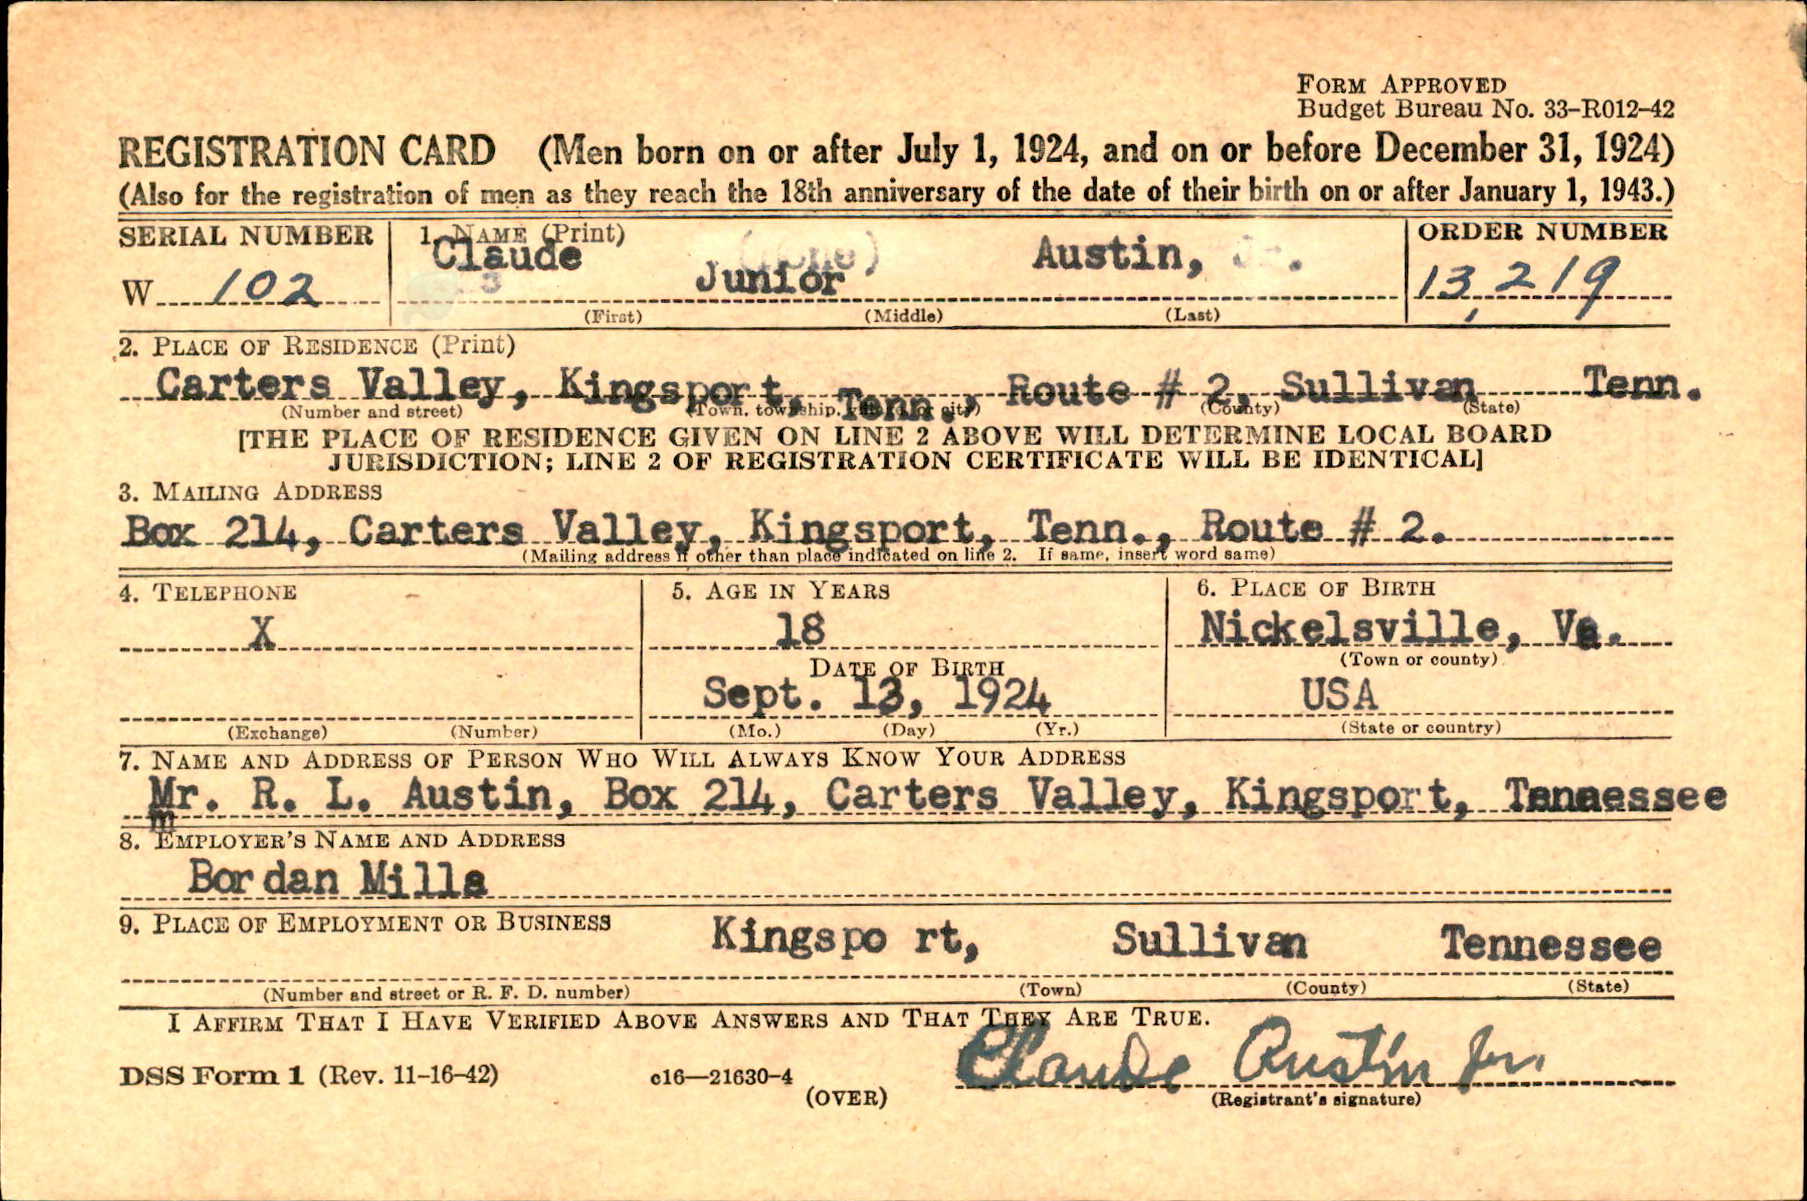 FORM APPROVED
Budget Bureau No. 33–R012–42
REGISTRATION CARD (Men born on or after July 1, 1924, and on or before December 31, 1924)
(Also for the registration of men as they reach the 18th anniversary of the date of their birth on or after January 1, 1943.)
SERIAL NUMBER 1. NAME (Print) ORDER NUMBER
Claude (None) Austin, Jr.
W 102 Junior 13,219
(First) (Middle) (Last)
2. PLACE OF RESIDENCE (Print)
Carters Valley, Kingsport, Tenn., Route # 2, Sullivan Tenn.
(Number and street) (Town, township, village, or city) (County) (State)
[THE PLACE OF RESIDENCE GIVEN ON LINE 2 ABOVE WILL DETERMINE LOCAL BOARD
JURISDICTION; LINE 2 OF REGISTRATION CERTIFICATE WILL BE IDENTICAL]
3. MAILING ADDRESS
Box 214, Carters Valley, Kingsport, Tenn., Route # 2.
(Mailing address if other than place indicated on line 2. If same, insert word same)
4. TELEPHONE 5. AGE IN YEARS 6. PLACE OF BIRTH
X 18 Nickelsville, Va.
DATE OF BIRTH (Town or county)
Sept. 13, 1924 USA
(Exchange) (Number) (Mo.) (Day) (Yr.) (State or country)
7. NAME AND ADDRESS OF PERSON WHO WILL ALWAYS KNOW YOUR ADDRESS
Mr. R. L. Austin, Box 214, Carters Valley, Kingsport, Tennessee
8. EMPLOYER'S NAME AND ADDRESS
Bordan Mills
9. PLACE OF EMPLOYMENT OR BUSINESS
Kingspo rt, Sullivan Tennessee
(Number and street or R. F. D. number) (Town) (County) (State)
I AFFIRM THAT I HAVE VERIFIED ABOVE ANSWERS AND THAT THEY ARE TRUE.
Claude Austin Jr.
DSS Form 1 (Rev. 11–16–42) c16—21630–4
(OVER) (Registrant's signature)